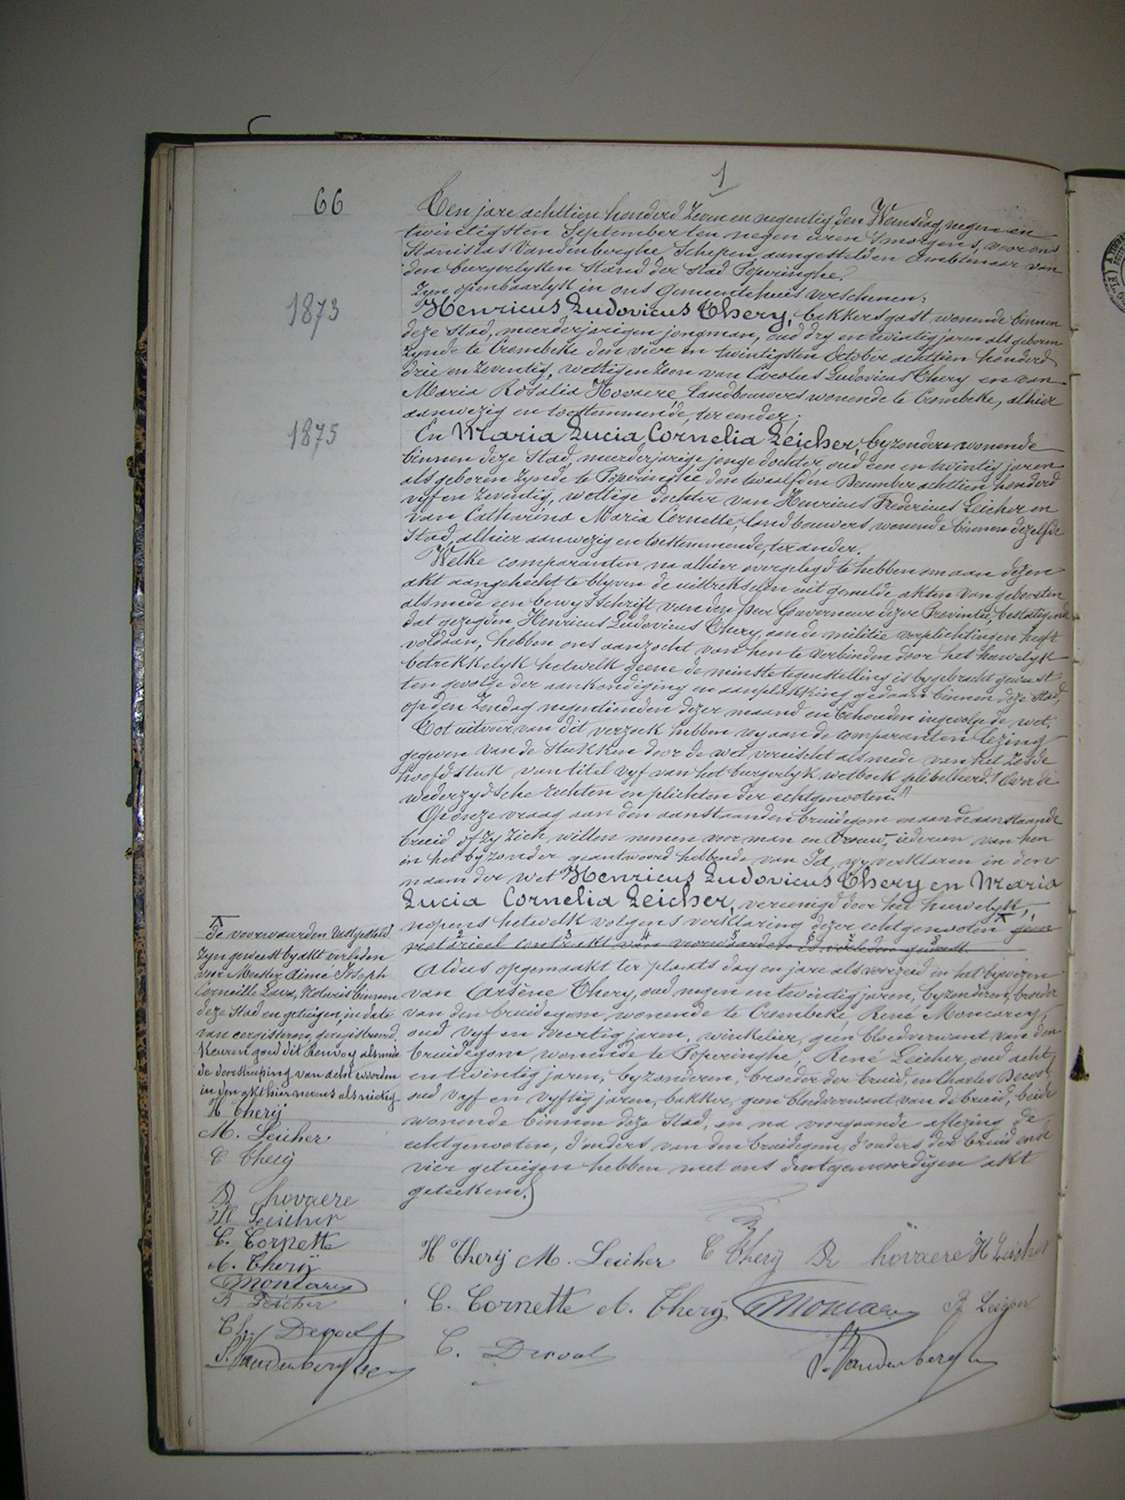 1
66
Ten jare achttien honderd zeven en negentig den Woensdag negen en
twintigsten September ten negen uren 's morgens, voor ons
Stanislas Vandenberghe Schepen, aangestelden Ambtenaar van
den burgerlyken Stand der Stad Poperinghe.
Zyn openbaarlyk in ons Gemeentehuis verschenen;
1873
Henricus Ludovicus Thery, bakkersgast wonende binnen
deze Stad, meerderjarigen jongman, oud dry en twintig jaren als geboren
zynde te Crombeke den vier en twintigsten October achttien honderd
drie en zeventig, wettigen zoon van Carolus Ludovicus Thery en van
Maria Rosalia Hovaere, landbouwers wonende te Crombeke, alhier
aanwezig en toestemmende, ter eender;
1875
En Maria Lucia Cornelia Leicher, byzondere wonende
binnen deze Stad, meerderjarige jonge dochter, oud een en twintig jaren
als geboren zynde te Poperinghe den twaalfden December achttien honderd
vyf en zeventig, wettige dochter van Henricus Fredericus Leicher en
van Catharina Maria Cornette, landbouwers wonende binnen dezelfde
Stad, alhier aanwezig en toestemmende, ter ander.
Welke comparanten na alhier overgelegd te hebben om aan dezen
akt aangehecht te blyven de uittreksels uit gemelde akten van geboorten
alsmede een bewysschrift van den heer Gouverneur dezer Provintie, bestatigende
dat gezegden Henricus Ludovicus Thery, aan de militie verplichtingen heeft
voldaan, hebben ons aanzocht van hen te verbinden door het huwelyk
betrekkelyk hetwelk geene de minste tegenstelling is bygebracht geweest
ten gevolge der aankondiging en aanplakking gedaan binnen deze Stad,
op den Zondag negentienden dezer maand en behouden ingevolge de wet.
Tot uitvoer van dit verzoek hebben wy aan de comparanten lezing
gegeven van de stukken door de wet vereischt alsmede van het zesde
hoofdstuk van titel vyf van het burgerlyk wetboek gelibelleerd "Over de
wederzydsche rechten en plichten der echtgenooten."
Op onze vraag aan den aanstaanden bruidegom en aan de aanstaande
bruid of zy zich willen nemen voor man en vrouw, iederen van hen
in het byzonder geantwoord hebbende van Ja, wy verklaren in den
naam der wet Henricus Ludovicus Thery en Maria
Lucia Cornelia Leicher, vereenigd door het huwelyk,
nopens hetwelk volgens verklaring dezer echtgenooten geen
notarieel contrakt van voorwaarden is verleden geweest.
Aldus opgemaakt ter plaats dag en jare als voorzeid in het bywezen
van Arsène Thery, oud negen en twintig jaren, byzonderen, broeder
van den bruidegom wonende te Crombeke, René Moncarey,
oud vyf en veertig jaren, winkelier, geen bloedverwant van den
bruidegom wonende te Poperinghe, René Leicher, oud acht
en twintig jaren, byzonderen, broeder der bruid, en Charles Devos
oud vyf en vyftig jaren, bakker, geen bloedverwant van de bruid, beide
wonende binnen deze Stad, en na voorgaande aflezing de
echtgenooten, d'ouders van den bruidegom, d'ouders der bruid en de
vier getuigen hebben met ons dit tegenwoordigen akt
geteekend.
De voorwaarden vastgesteld
zyn geweest by akt verleden
voor Meester Aimé Joseph
Corneille Lava, Notaris binnen
deze Stad en getuigen, in date
van eergisteren, geregistreerd.
Keuren goed dit Renvoy alsmede
de doorstreping van acht woorden
in den akt hiernevens als nietig
H Therÿ
M. Leicher
C Therÿ
R hovaere
H Leicher
C. Cornette
A. Therÿ
Moncarey
R Leicher
S. Vandenberghe
H Therÿ M. Leicher C Therÿ R hovaere H Leicher
C. Cornette A. Therÿ Moncarey R Leicher
S. Vandenberghe